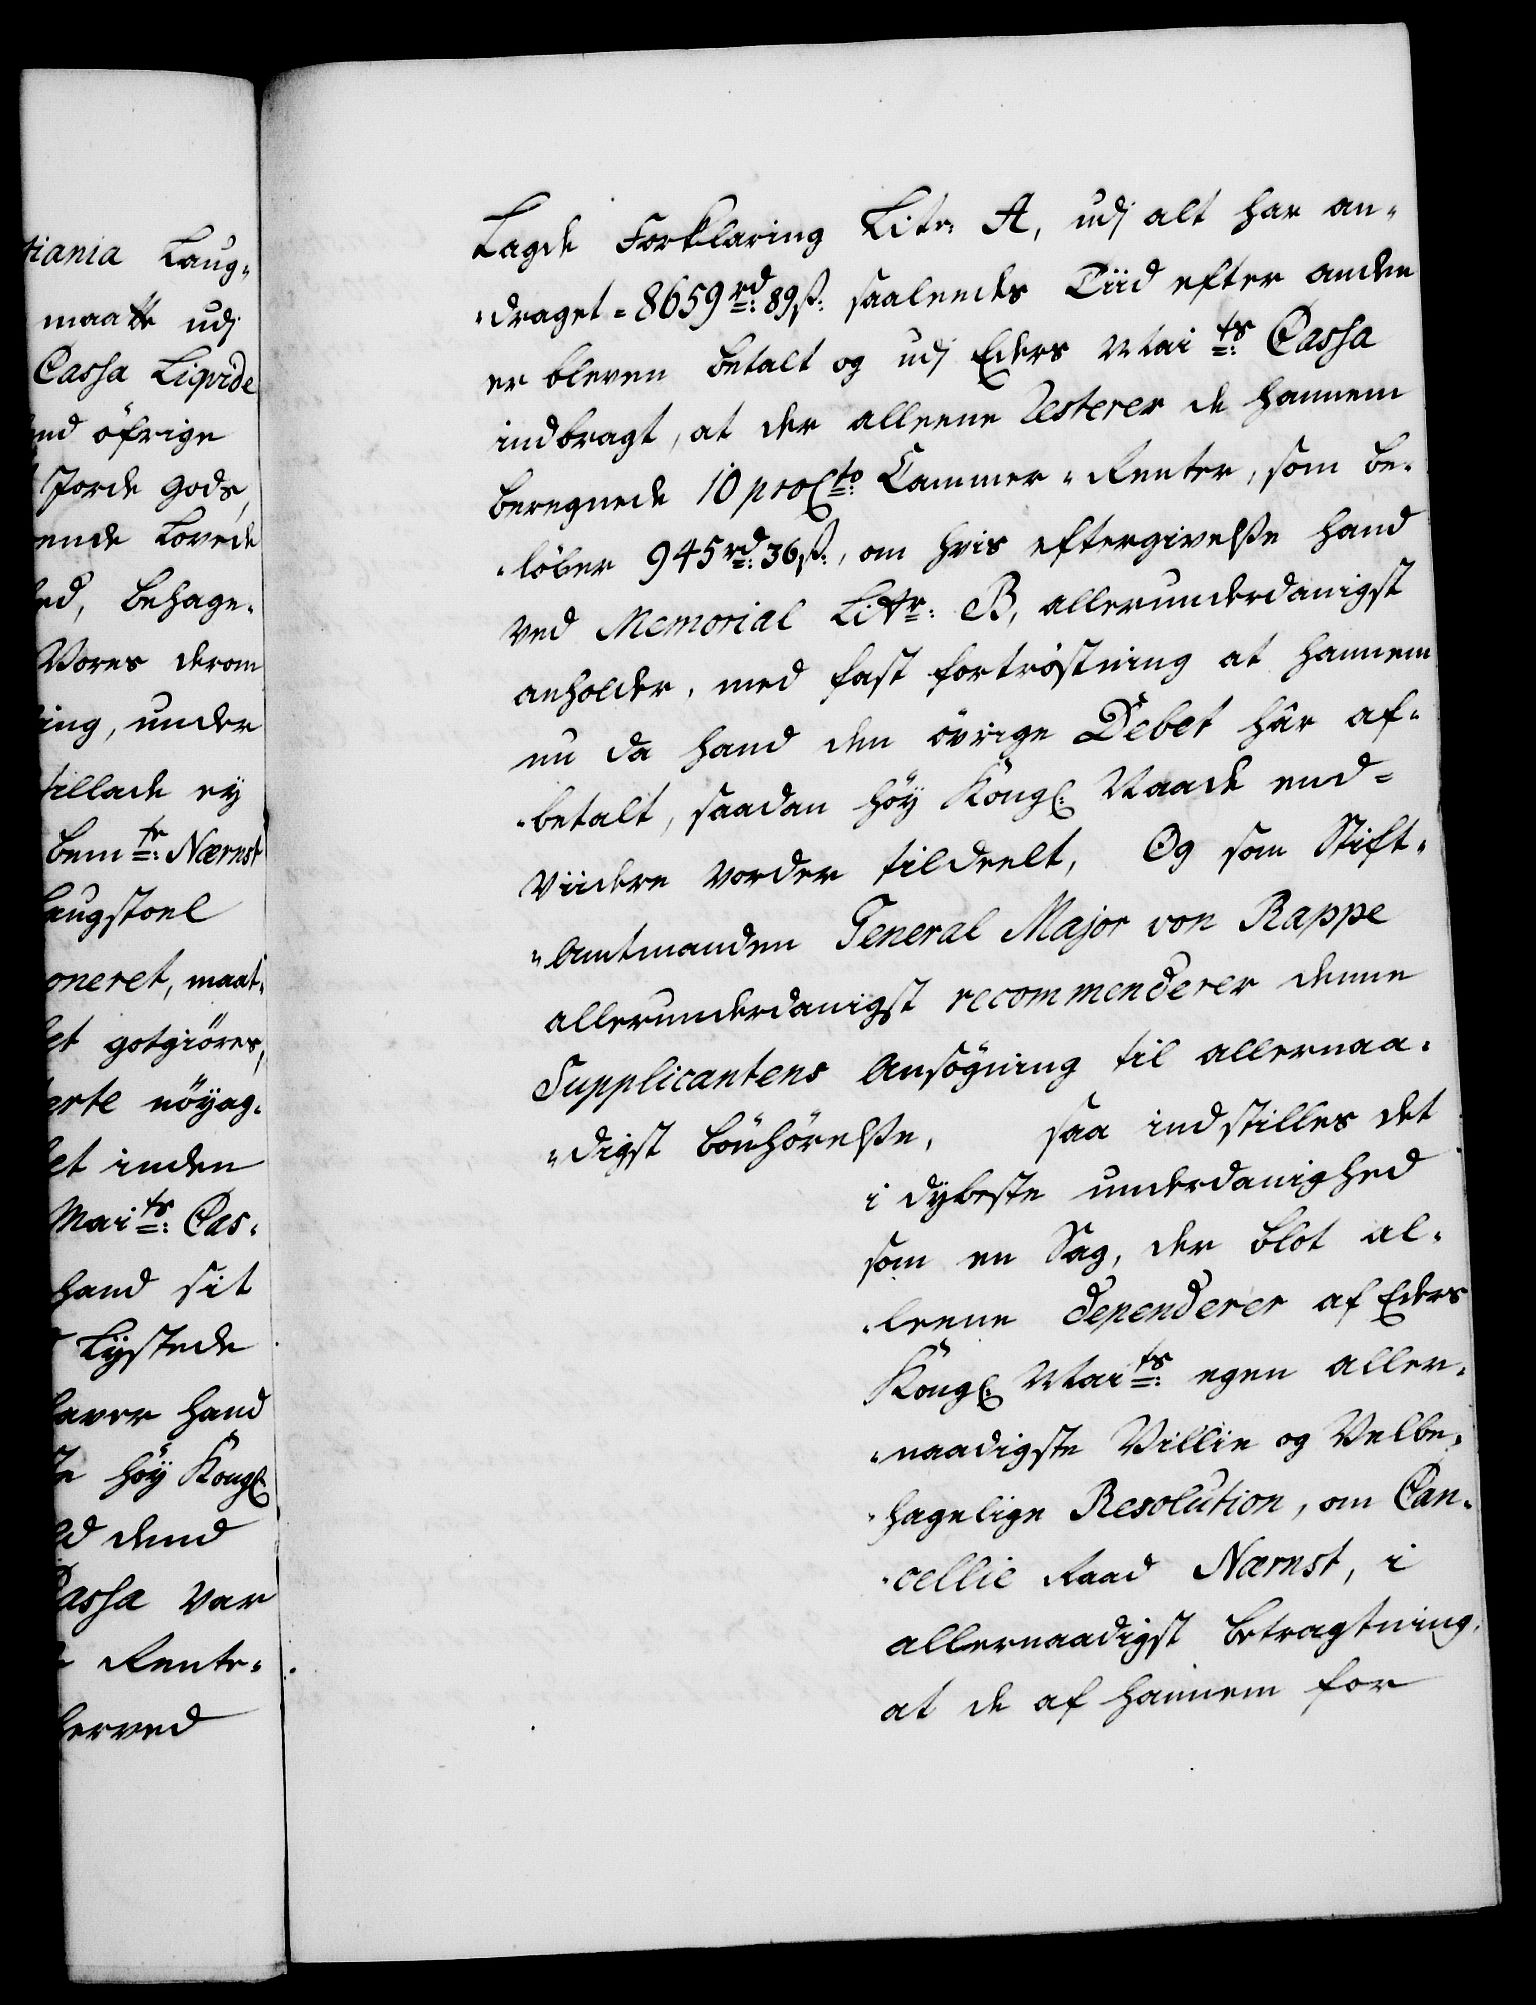 tiania Laug-
maatte udj
Cassa Liqvide
end öfrige
Jorde gods,
ende Lovede
ed, behage-
Vores derom
ing, under
tillade ey
bemte: Nærnst
augstoel
oneret, maat-
et gotgiöres,
erte nöyag-
et inden
Maits: Cas-
hand sit
Lÿstede
aver hand
höÿ Kongl:
ed dend
Cassa var
Rente-
herved
Lagde Forklaring Litr: A, udj alt har an-
-draget = 8659 rd: 89 ß: saaledes Tiid efter anden
er bleven betalt og udj Eders Maits: Cassa
indbragt, at der alleene resterer de hannem
beregnede 10 proCto: Cammer-Renter, som be-
-löber 945 rd: 36 ß:, om hvis eftergivelße hand
ved Memorial Littr: B, allerunderdanigst
anholder, med fast fortröstning at hannem
nu da hand den övrige Debet har af-
-betalt, saadan höÿ Kongl: Naade end-
Viidere vorder tildeelt, Og som Stift-
-Amtmanden General Major von Rappe
allerunderdanigst recommenderer denne
Supplicantens Ansögning til allernaa-
-digst bönhörelße, saa indstilles det
i dÿbeste underdanighed
som en Sag, der blot al-
-leene dependerer af Eders
Kongl: Maits: egen aller-
-naadigste Villie og Velbe-
-hagelige Resolution, om Can-
-cellie Raad Nærnst, i
allernaadigst betragtning,
at de af hannem for